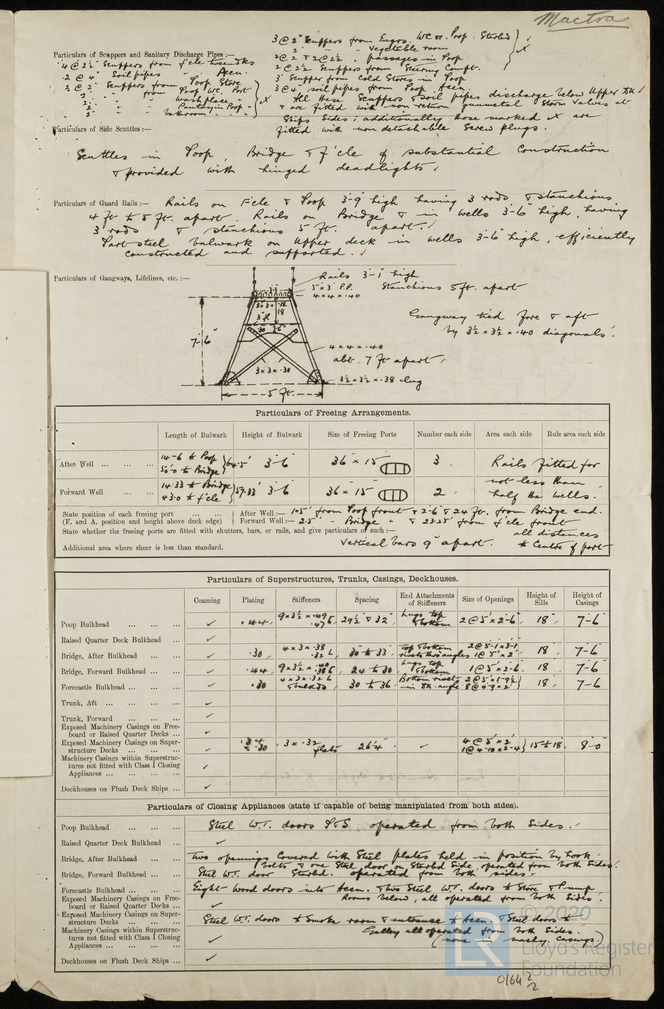 Mactra
3 @ 2" Scuppers from Engrs. W.C. or Poop. Starbd
2" " " Vegetable room
Particulars of Scuppers and Sanitary Discharge Pipes:—
2 @ 2" & 2 @ 2½ " passages in Poop
4 @ 2½" Scuppers from f'cle
2 @ 2½ Scuppers from Steering Compt.
2 @ 4" Soil pipes " Accn.
3" Scupper from Cold Stores in Poop
2 @ 2" Scuppers from Poop Store
3 @ 4" soil pipes from Poop Accn.
2" " from Prop. W.C. Port
All these Scuppers & soil pipes discharge below Upper Dk
2" " washplace
& are fitted with non return gunmetal storm valves at
2" " Pantry in Poop
Ships Sides; additionally those marked X are
fitted with non detachable screw plugs.
Particulars of Side Scuttles:—
Scuttles in Poop, Bridge & f'cle of substantial construction
& provided with hinged deadlights.
Particulars of Guard Rails:— Rails on Fcle & Poop 3-9 high having 3 rods & stanchions
4 ft to 5 ft. apart. Rails on Bridge & in wells 3-6" high, having
3 rods & stanchions 5 ft. apart.
Part steel bulwark on Upper deck in wells 3-6 high, efficiently
constructed and supported.
Particulars of Gangways, Lifelines, etc.:—
Rails 3-1" high
5 x 3 P.P.
4 x 4 x .40
Stanchions 5 ft. apart
Gangway tied fore & aft
by 3½ x 3½ x .40 diagonals.
7-6"
4 x 4 x .40
abt. 7 ft apart
3 x 3 x .30
3½ x 3½ x .38 clug
5 ft.
Particulars of Freeing Arrangements.
Length of Bulwark Height of Bulwark Size of Freeing Ports Number each side Area each side Rule area each side
After Well 14-6 to Poop 50-0 to Bridge } 64.5' 3-6" 36 x 15 3 Rails fitted for
not less than
Forward Well 14.33 to Bridge 43.0 to f'cle } 57.33' 3-6" 36" x 15" 2 half the wells.
State position of each freeing port After Well:— 10.5' from Poop front & 2-6" & 24 ft. from Bridge end.
(F. and A. position and height above deck edge) Forward Well:— 2.5' " Bridge " & 23.25' from f'cle front
State whether the freeing ports are fitted with shutters, bars, or rails, and give particulars of such:— all distances
Vertical bars 9" apart. to Centre of port
Additional area where sheer is less than standard.
Particulars of Superstructures, Trunks, Casings, Deckhouses.
Coaming Plating Stiffeners Spacing End Attachments of Stiffeners Size of Openings Height of Sills Height of Casings
Poop Bulkhead ✓ .44 9 x 3½ x .49 .476 29½ & 32" Lugs top & bottom 2 @ 5' x 2-6" 18" 7-6
Raised Quarter Deck Bulkhead ✓
Bridge, After Bulkhead ✓ .30 4 x 3 x .38 30 to 33 top & bottom 2 @ 5-1 x 3-1 1 @ 5' x 3" 18" 7-6
Bridge, Forward Bulkhead ✓ .44 9 x 3½ x 24 to 30 Lugs top & bottom 1 @ 5' x 2-6 18" 7-6
Forecastle Bulkhead ✓ .30 4 x 3 x 30 to 36 Bottom rivets in dk. angle 18" 7-6
Trunk, Aft ✓
Trunk, Forward ✓
Exposed Machinery Casings on Freeboard or Raised Quarter Decks ✓
Exposed Machinery Casings on Superstructure Decks .34 & .30 3 x .32 flats 26¼" ✓ 4 @ 5' x 2' 1 @ 4-10 x 2-4 15 to 18" 8-0
Machinery Casings within Superstructures not fitted with Class I Closing Appliances ✓
Deckhouses on Flush Deck Ships ✓
Particulars of Closing Appliances (state if capable of being manipulated from both sides).
Poop Bulkhead Steel W.T. doors P&S operated from both Sides.
Raised Quarter Deck Bulkhead ✓
Bridge, After Bulkhead Two openings covered with Steel plates held in position by hook
bolts & one Steel door on Starbd Side, operated from both Sides.
Bridge, Forward Bulkhead Steel W.T. door Starbd. operated from both sides.
Forecastle Bulkhead Eight wood doors into Accn. & two Steel W.T. doors to Store & Pump
Rooms below, all operated from both Sides.
Exposed Machinery Casings on Freeboard or Raised Quarter Decks ✓
Exposed Machinery Casings on Superstructure Decks Steel W.T. doors to Smoke room & entrance to Accn. & Steel doors to
Galley all operated from both Sides.
Machinery Casings within Superstructures not fitted with Class I Closing Appliances ✓
Deckhouses on Flush Deck Ships ✓
© 2020
LR
Lloyd's Register
Foundation
0164 2/2